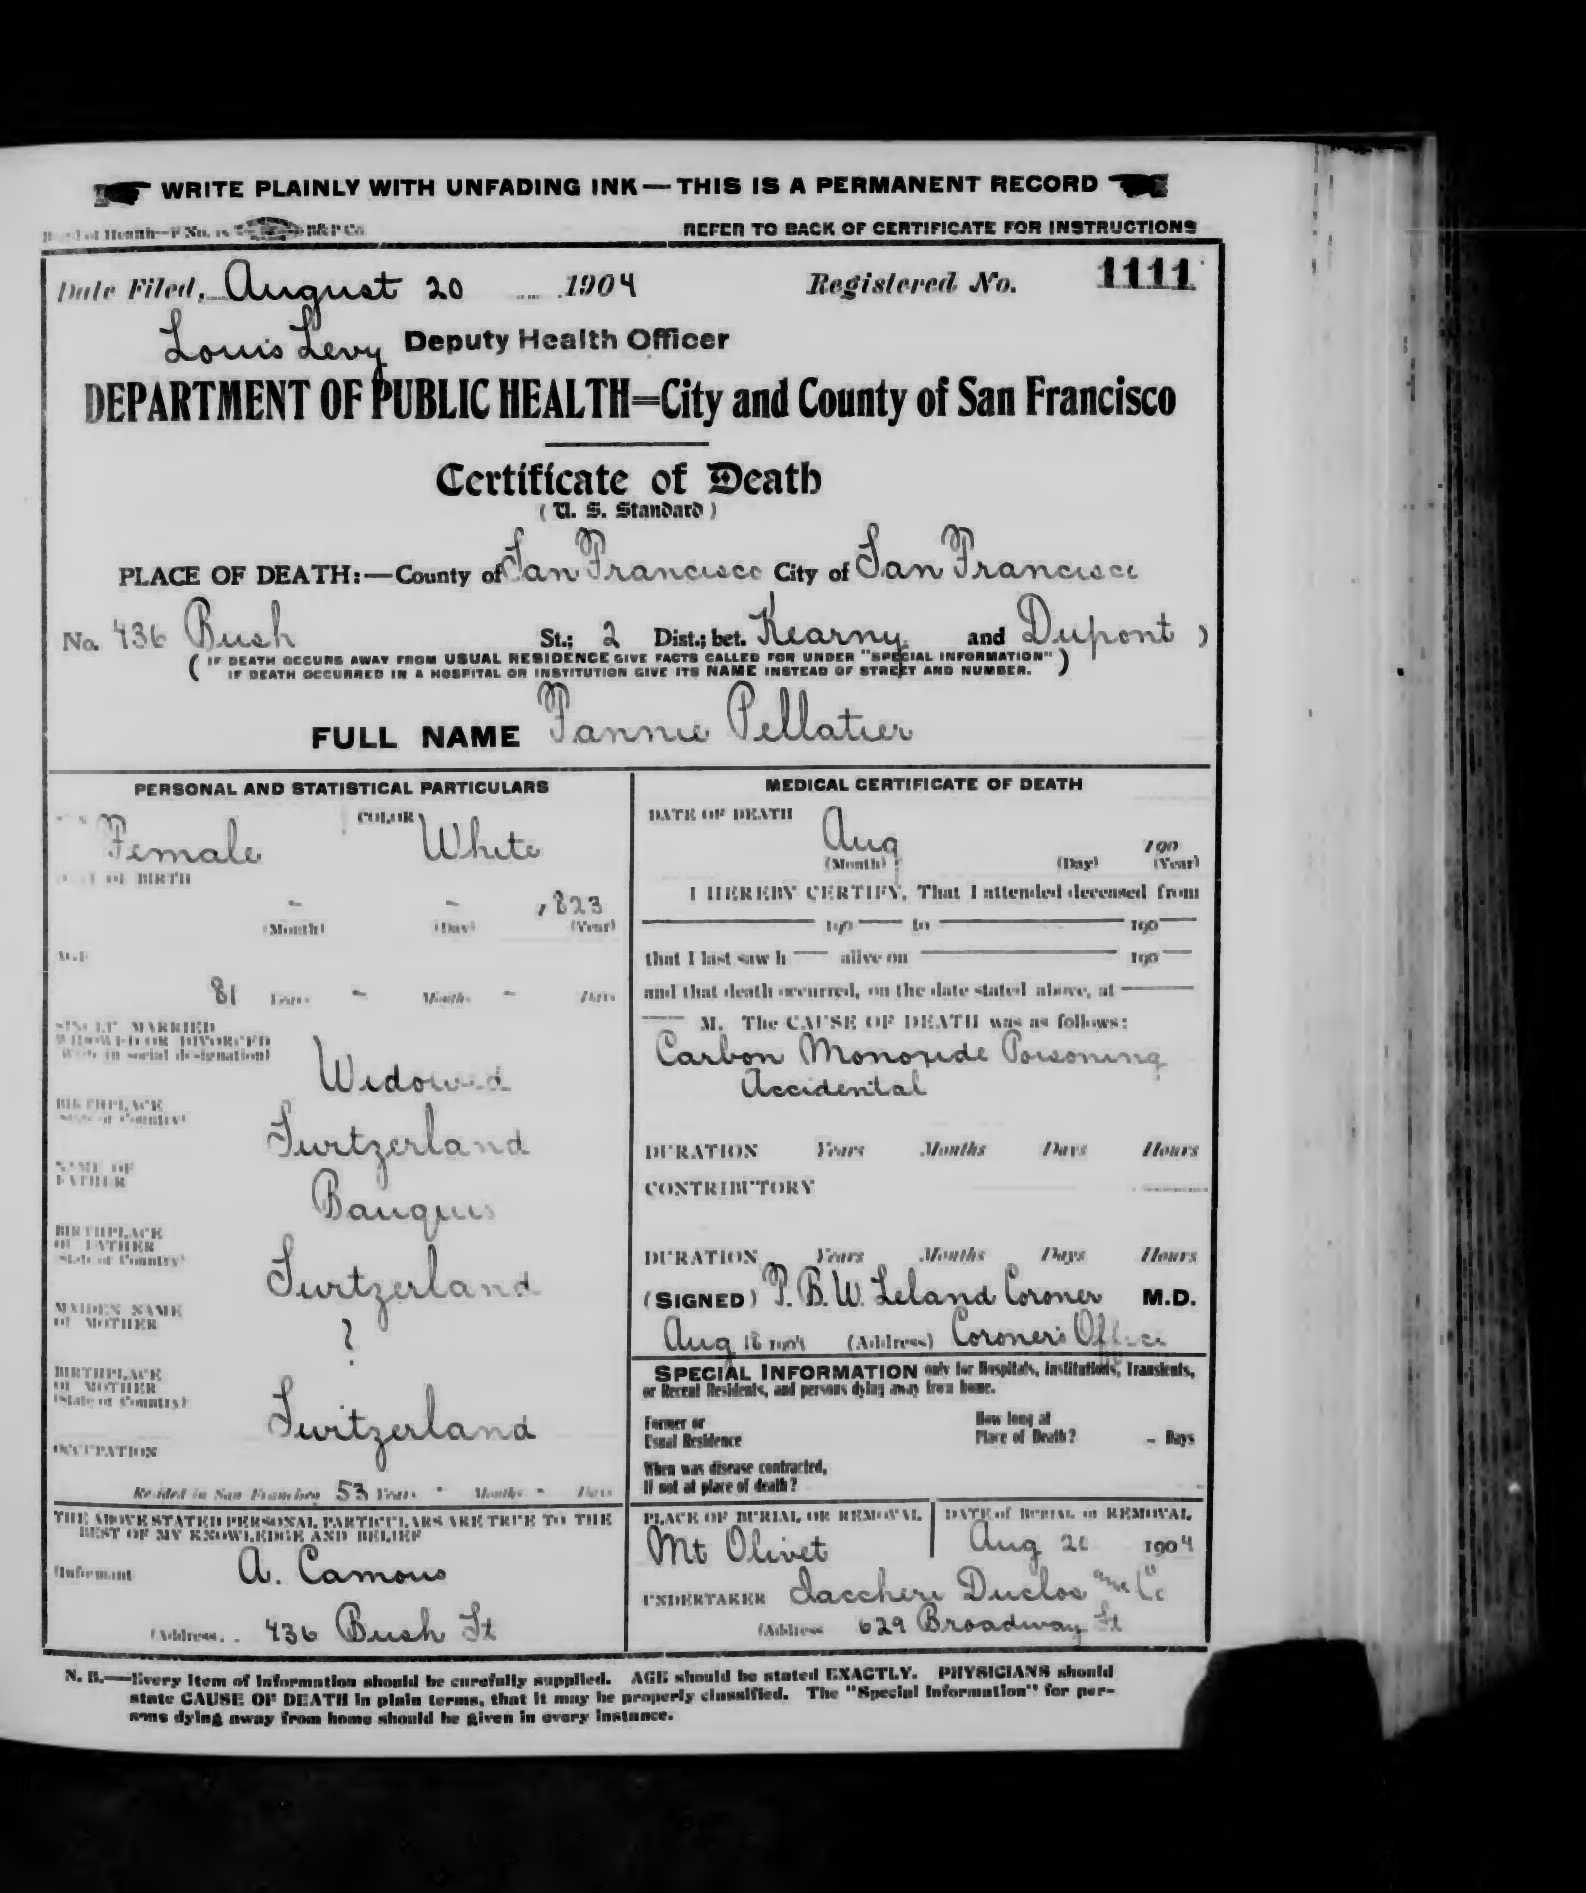 WRITE PLAINLY WITH UNFADING INK — THIS IS A PERMANENT RECORD
Board of Health—F No. 15 B&P Co.
REFER TO BACK OF CERTIFICATE FOR INSTRUCTIONS
Date Filed, August 20 1904 Registered No. 1111
Louis Levy Deputy Health Officer
DEPARTMENT OF PUBLIC HEALTH=City and County of San Francisco
Certificate of Death
(U. S. Standard)
PLACE OF DEATH:—County of San Francisco City of San Francisco
No. 436 Bush St.; 2 Dist.; bet. Kearny and Dupont )
( IF DEATH OCCURS AWAY FROM USUAL RESIDENCE GIVE FACTS CALLED FOR UNDER "SPECIAL INFORMATION" )
IF DEATH OCCURRED IN A HOSPITAL OR INSTITUTION GIVE ITS NAME INSTEAD OF STREET AND NUMBER.
FULL NAME Fannie Pellatier
PERSONAL AND STATISTICAL PARTICULARS
SEX Female COLOR White
DATE OF BIRTH
- - 1823
(Month) (Day) (Year)
AGE
81 Years - Months - Days
SINGLE MARRIED
WIDOWED OR DIVORCED
(Write in social designation)
Widowed
BIRTHPLACE
(State or Country)
Switzerland
NAME OF
FATHER
Bauquis
BIRTHPLACE
OF FATHER
(State or Country)
Switzerland
MAIDEN NAME
OF MOTHER
?
BIRTHPLACE
OF MOTHER
(State or Country)
Switzerland
OCCUPATION
Resided in San Francisco 53 Years - Months - Days
THE ABOVE STATED PERSONAL PARTICULARS ARE TRUE TO THE
BEST OF MY KNOWLEDGE AND BELIEF
(Informant A. Camous
(Address 436 Bush St
MEDICAL CERTIFICATE OF DEATH
DATE OF DEATH
Aug 190
(Month) (Day) (Year)
I HEREBY CERTIFY, That I attended deceased from
190 to 190
that I last saw h alive on 190
and that death occurred, on the date stated above, at
M. The CAUSE OF DEATH was as follows:
Carbon Monoxide Poisoning
Accidental
DURATION Years Months Days Hours
CONTRIBUTORY
DURATION Years Months Days Hours
(SIGNED) T. B. W. Leland Coroner M.D.
Aug 18 1904 (Address) Coroner's Office
SPECIAL INFORMATION only for Hospitals, Institutions, Transients,
or Recent Residents, and persons dying away from home.
Former or
Usual Residence
How long at
Place of Death? - Days
When was disease contracted,
If not at place of death?
PLACE OF BURIAL OR REMOVAL
Mt Olivet
DATE of BURIAL or REMOVAL
Aug 20 1904
UNDERTAKER Iaccheri Duclos and Co
(Address 629 Broadway St
N. B.—Every item of information should be carefully supplied. AGE should be stated EXACTLY. PHYSICIANS should
state CAUSE OF DEATH in plain terms, that it may be properly classified. The "Special Information" for per-
sons dying away from home should be given in every instance.